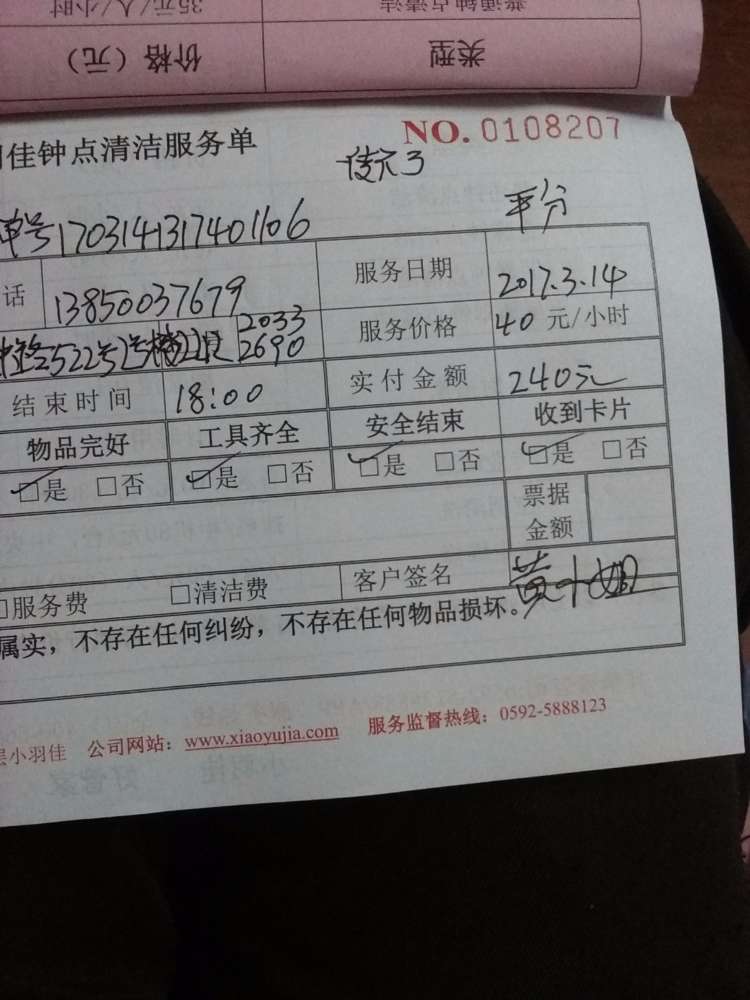 普通钟点清洁 35元/人/小时
类型 价格（元）
佳钟点清洁服务单 NO. 0108207
平分
单号1703141317401106
话 13850037679 服务日期 2017.3.14
522号 2033 2690 服务价格 40 元/小时
结束时间 18:00 实付金额 240元
物品完好 工具齐全 安全结束 收到卡片
□是 □否 □是 □否 □是 □否 □是 □否
票据金额
□服务费 □清洁费 客户签名 黄小姐
属实，不存在任何纠纷，不存在任何物品损坏。
小羽佳 公司网站：www.xiaoyujia.com 服务监督热线：0592-5888123